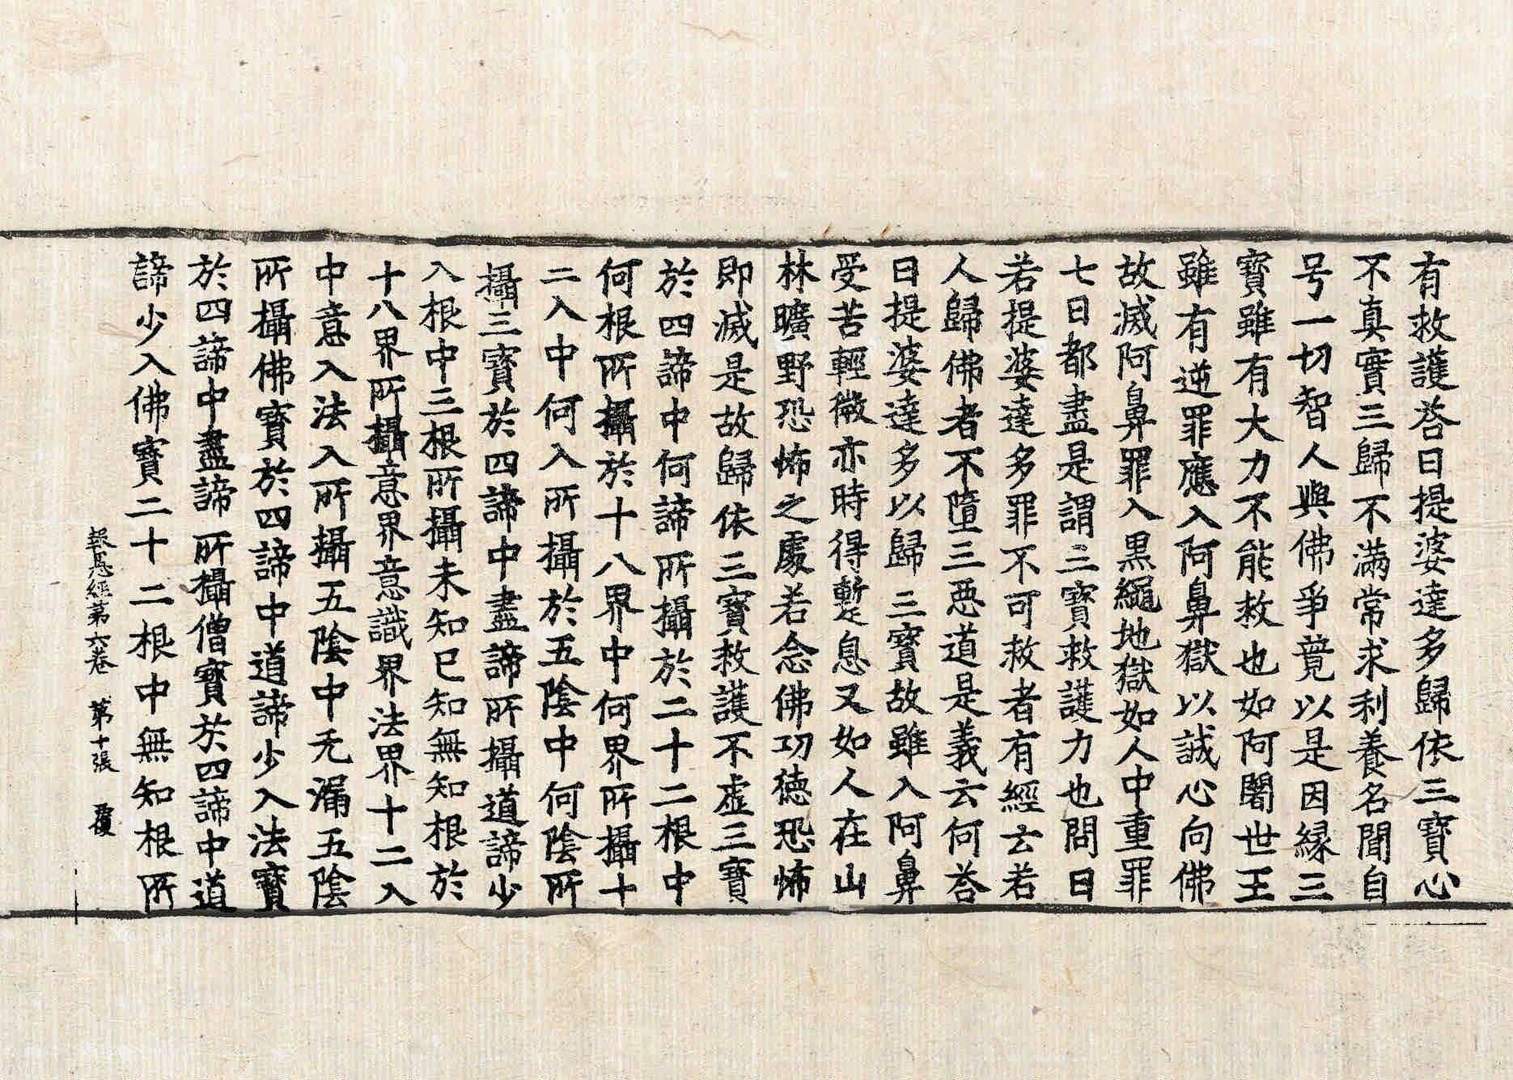 有救護荅曰提婆達多歸依三寶心
不真實三歸不滿常求利養名聞自
号一切智人與佛爭競以是因緣三
寶雖有大力不能救也如阿闍世王
雖有逆罪應入阿鼻獄以誠心向佛
故滅阿鼻罪入黑繩地獄如人中重罪
七日都盡是謂三寶救護力也問曰
若提婆達多罪不可救者有經云若
人歸佛者不墮三惡道是義云何荅
曰提婆達多以歸三寶故雖入阿鼻
受苦輕微亦時得暫息又如人在山
林曠野恐怖之處若念佛功德恐怖
即滅是故歸依三寶救護不虛三寶
於四諦中何諦所攝於二十二根中
何根所攝於十八界中何界所攝十
二入中何入所攝於五陰中何陰所
攝三寶於四諦中盡諦所攝道諦少
入根中三根所攝未知已知無知根於
十八界所攝意界意識界法界十二入
中意入法入所攝五陰中无漏五陰
所攝佛寶於四諦中道諦少入法寶
於四諦中盡諦所攝僧寶於四諦中道
諦少入佛寶二十二根中無知根所
報恩經第六卷 第十張 覆